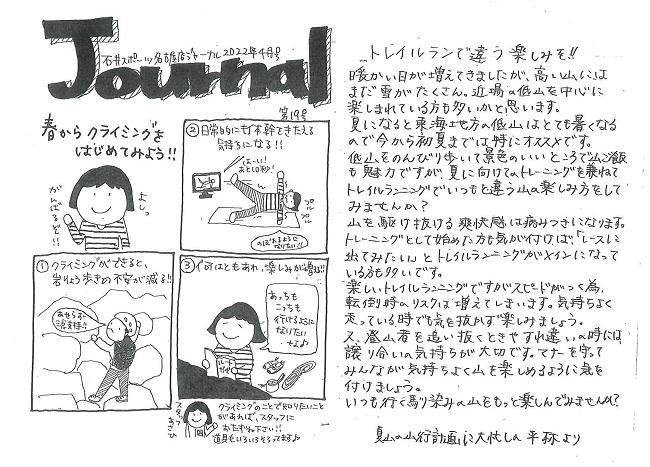 Journal
石井スポーツ名古屋店ジャーナル2022年4月号
第19号
春からクライミングを
はじめてみよう!!
よっ
がんばるぞ!!
① クライミングができると、
岩りょう歩きの不安が減る!!
あせらず
三点支持!!
② 日常的にも体幹をきたえる
気持ちになる!!
はーい!
あと10秒!
プル
プル
のぼれるように
なりたい!!
③ 何はともあれ、楽しみが増える!!
あっちも
こっちも
行けるように
なりたい
なぁ♪
クライミングのことで知りたいこと
があれば、スタッフに
おたずね下さい!!
道具もいろいろそろってます♪
スタッフ
あさひ
トレイルランで違う楽しみを!!
暖かい日が増えてきましたが、高い山には
まだ雪がたくさん。近場の低山を中心に
楽しまれている方も多いかと思います。
夏になると東海地方の低山はとても暑くなる
ので今から初夏までは特にオススメです。
低山をのんびり歩いて景色のいいところで山ご飯
も魅力ですが、夏に向けてのトレーニングを兼ねて
トレイルランニングでいつもと違う山の楽しみ方をして
みませんか?
山を駆け抜ける爽快感は病みつきになります。
トレーニングとして始めた方も気が付けば、「レースに
出てみたい」とトレイルランニングがメインになって
いる方も多いです。
楽しいトレイルランニングですがスピードがつく為、
転倒時のリスクは増えてしまいます。気持ちよく
走っている時でも気を抜かず楽しみましょう。
又、登山者を追い抜くときやすれ違いの時には
譲り合いの気持ちが大切です。マナーを守って
みんなが気持ちよく山を楽しめるように気を
付けましょう。
いつも行く馴染みの山をもっと楽しんでみませんか?
夏山の山行計画に大忙しの 平林より